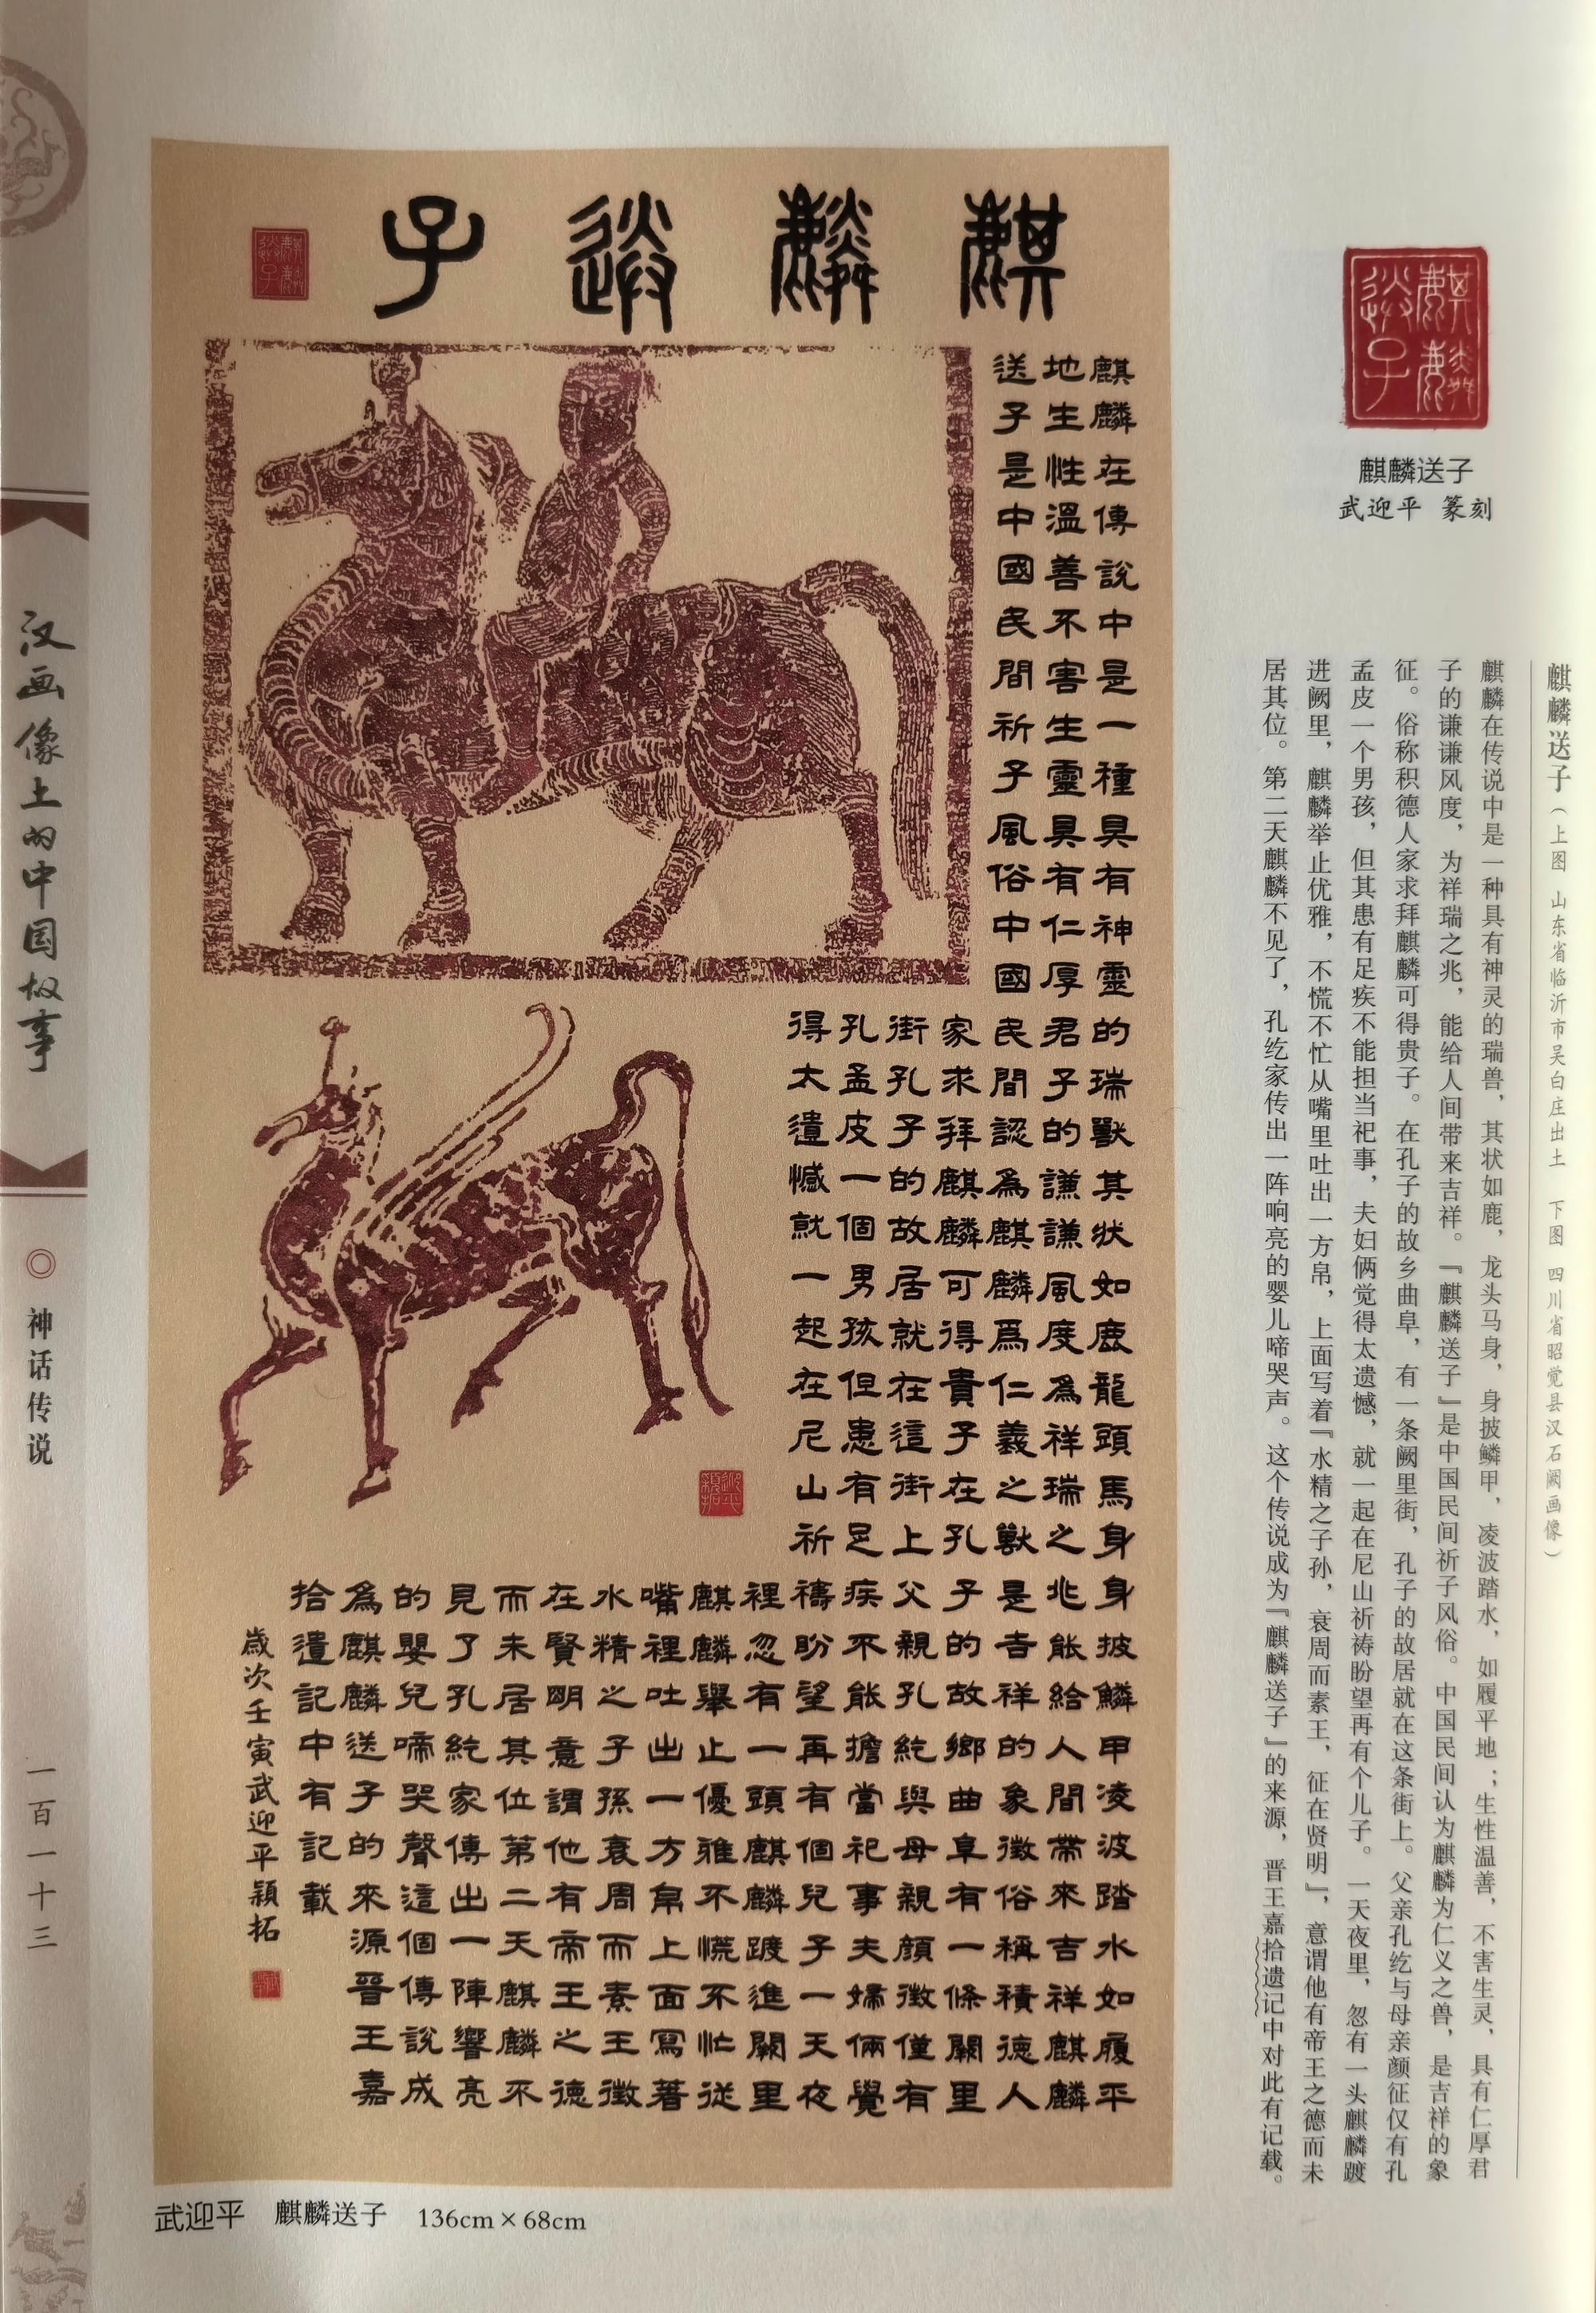 麒麟送子
武迎平 篆刻
麒麟送子（上图 山东省临沂市吴白庄出土 下图 四川省昭觉县汉石阙画像）
麒麟在传说中是一种具有神灵的瑞兽，其状如鹿，龙头马身，身披鳞甲，凌波踏水，如履平地；生性温善，不害生灵，具有仁厚君
子的谦谦风度，为祥瑞之兆，能给人间带来吉祥。『麒麟送子』是中国民间祈子风俗。中国民间认为麒麟为仁义之兽，是吉祥的象
征。俗称积德人家求拜麒麟可得贵子。在孔子的故乡曲阜，有一条阙里街，孔子的故居就在这条街上。父亲孔纥与母亲颜征仅有孔
孟皮一个男孩，但其患有足疾不能担当祀事，夫妇俩觉得太遗憾，就一起在尼山祈祷盼望再有个儿子。一天夜里，忽有一头麒麟踱
进阙里，麒麟举止优雅，不慌不忙从嘴里吐出一方帛，上面写着『水精之子孙，衰周而素王，征在贤明』，意谓他有帝王之德而未
居其位。第二天麒麟不见了，孔纥家传出一阵响亮的婴儿啼哭声。这个传说成为『麒麟送子』的来源，晋王嘉拾遗记中对此有记载。
麒麟送子
麒麟送子
麒麟送子
麒麟在傳說中是一種具有神靈的瑞獸其狀如鹿龍頭馬身身披鱗甲凌波踏水如履平
地生性溫善不害生靈具有仁厚君子的謙謙風度為祥瑞之兆能給人間帶來吉祥麒麟
送子是中國民間祈子風俗中國民間認為麒麟為仁義之獸是吉祥的象徵俗稱積德人
家求拜麒麟可得貴子在孔子的故鄉曲阜有一條闕里
街孔子的故居就在這街上父親孔紇與母親顏徵僅有
孔孟皮一個男孩但患有足疾不能擔當祀事夫婦倆覺
得太遺憾就一起在尼山祈禱盼望再有個兒子一天夜
裡忽有一頭麒麟踱進闕里
麒麟舉止優雅不慌不忙從
嘴裡吐出一方帛上面寫著
水精之子孫衰周而素王徵
在賢明意謂他有帝王之德
而未居其位第二天麒麟不
見了孔紇家傳出一陣響亮
的嬰兒啼哭聲這個傳說成
為麒麟送子的來源晉王嘉
拾遺記中有記載
歲次壬寅武迎平穎拓
武迎平 麒麟送子 136cm×68cm
汉画像上的中国故事
◎神话传说
一百一十三